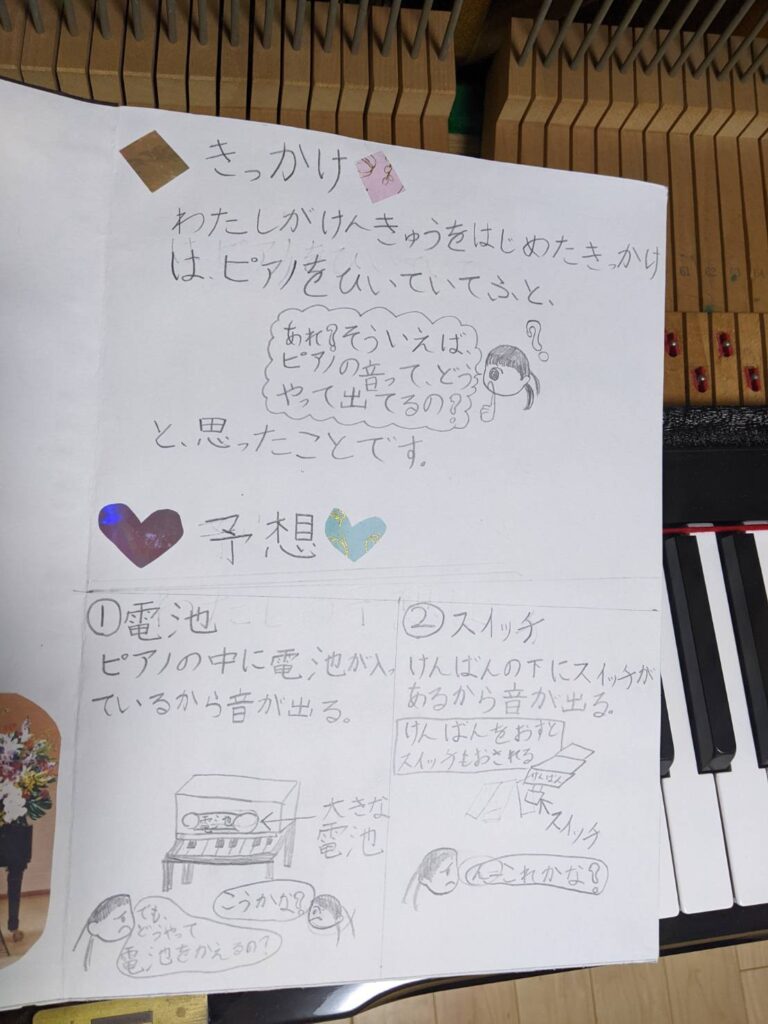 きっかけ
わたしがけんきゅうをはじめたきっかけ
は、ピアノをひいていてふと、
あれ?そういえば、
ピアノの音って、どう
やって出てるの?
?
と、思ったことです。
予想
①電池
ピアノの中に電池が入っ
ているから音が出る。
電池
大きな
電池
こうかな?
でも、
どうやって
電池をかえるの?
②スイッチ
けんばんの下にスイッチが
あるから音が出る。
けんばんをおすと
スイッチもおされる
けんばん
スイッチ
んーこれかな?